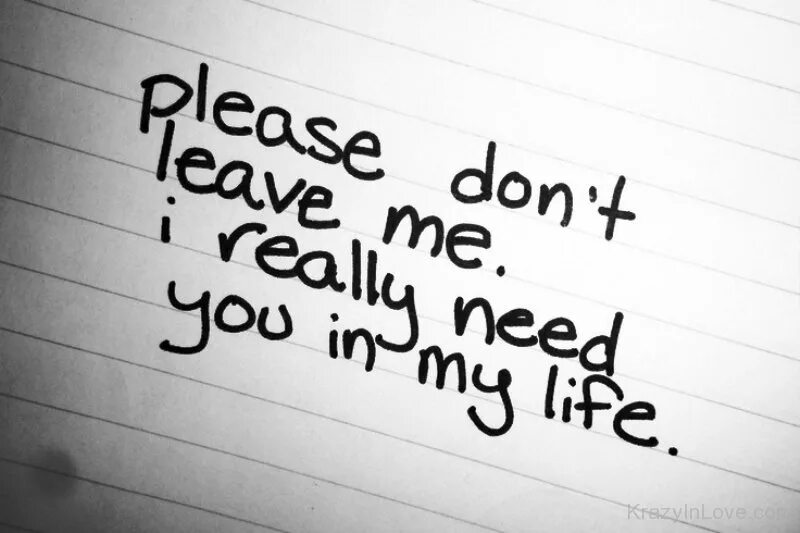 please don't
leave me.
i really need
you in my life.
KrazyInLove.com